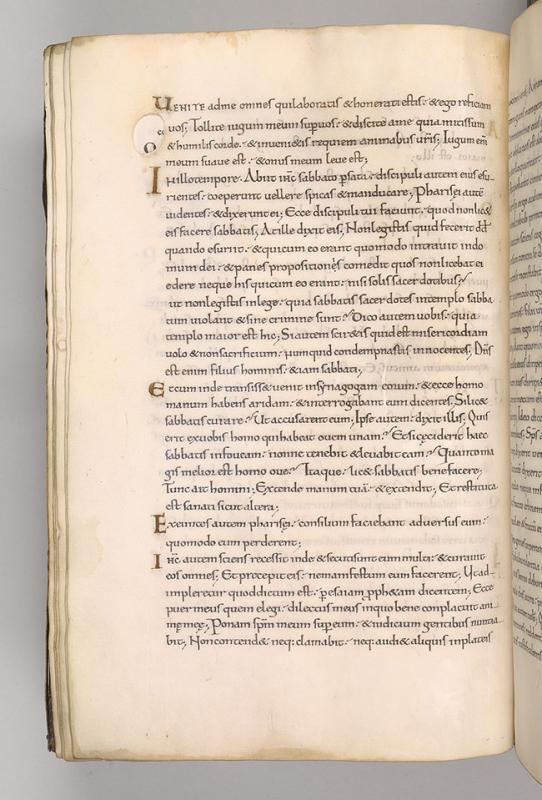 UENITE adme omnes quilaboratis & honerati estis· & ego reficiam
uos; Tollite iugum meum sup uos· & discite ame quia mitissum
& humilis corde· & inueni&is requiem animabus uris; Iugum em
meum suaue est· & onus meum leue est;
Inillotempore· Abiit ihc sabbato p sata· discipuli autem eius esu
rientes· coeperunt uellere spicas & manducare; Pharisęi autē
uidentes· & dixerunt ei; Ecce discipuli tui faciunt· quod non lic&
eis facere sabbatis; At ille dixit eis; Nonlegistis quid fecerit dd
quando esuriit· & quicum eo erant quomodo intrauit indo
mum dei· & panes propositionęs comedit quos nonlicebat ei
edere neque his quicum eo erant· nisi solis sacerdotibus;
ut nonlegistis inlege· quia sabbatis sacerdotes intemplo sabba
tum uiolant & sine crimine sunt· Dico autem uobis· quia
templo maior est hic; Si autem scir&is quid est misericordiam
uolo & nonsacrificium· numquid condempnastis innocentes; Dns
est enim filius hominis· & iam sabbati;
Et cum inde transiss& uenit insynagogam eorum· & ecce homo
manum habens aridam· & interrogabant eum dicentes; Si lic&
sabbatis curare· Ut accusarent eum; Ipse autem· dixit illis; Quis
erit exuobis homo quihabeat ouem unam· Et si ceciderit haec
sabbatis infoueam· nonne tenebit & leuabit eam· Quanto ma
gis melior est homo oue· Itaque· lic& sabbatis bene facere;
Tunc ait homini; Extende manum tuā· & extendit; Et restituta
est sanati sicut altera;
Exeuntes autem pharisęi· consilium faciebant aduersus eum·
quomodo eum perderent;
Ihc autem sciens recessit inde & secuti sunt eum multi· & curauit
eos omnes; Et precepit eis· ne manifestum eum facerent; Ut ad
impleretur quod dictum est· p esaiam pph&am dicentem; Ecce
puer meus quem elegi· dilectus meus inquo bene complacuit ani
męmeę; Ponam spm meum sup eum· & iudicium gentibus nuntia
bit; Non contend& neq: clamabit· neq: audi& aliquis inplateis